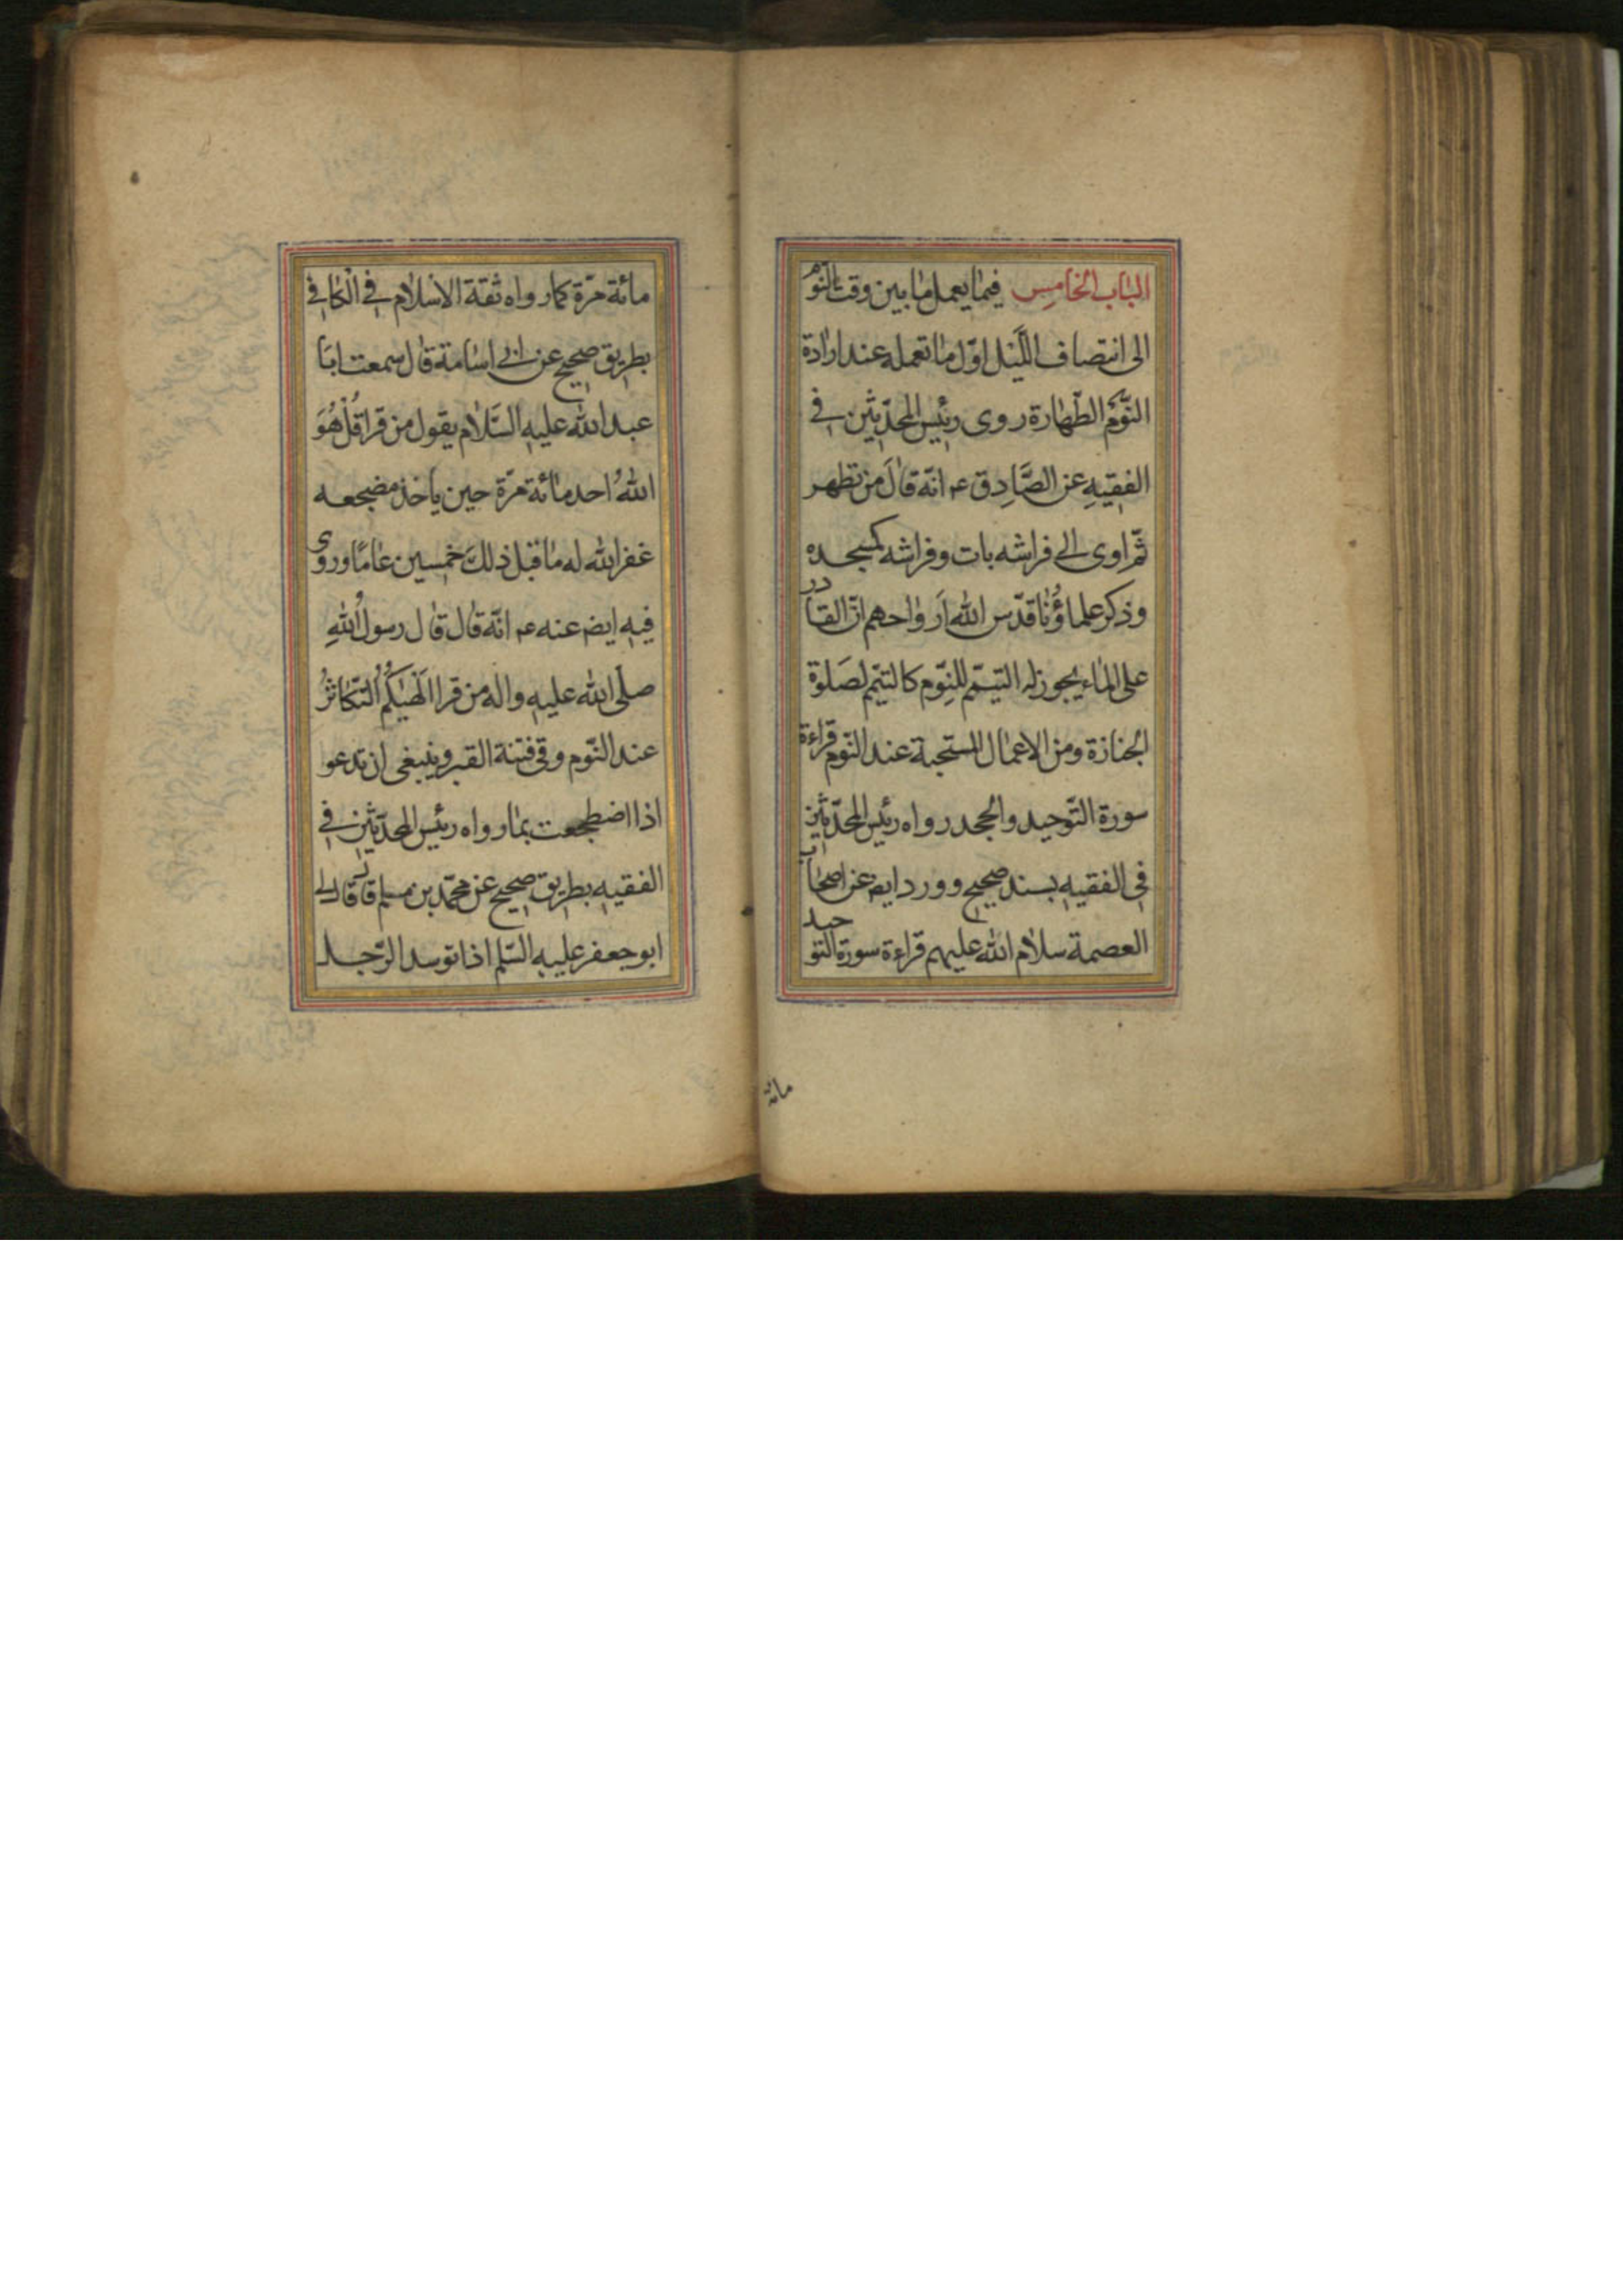 الباب الخامس فيما يعمل ما بين وقت النوم
الى انتصاف الليل اوّل ما تعمله عند ارادة
النّوم الطّهارة روى رئيس المحدّثين في
الفقيه عن الصَّادِق ع انّه قالَ من تطهر
ثمّ اوى الى فراشه بات وفراشه كمسجده
وذكر علماؤُنا قدّس الله اَرواحهم انّ القادر
على الماء يجوز له التيمّم للنّوم كالتيمّم لصَلوة
الجنازة ومن الاعمال المستحبة عند النّوم قراءة
سورة التّوحيد والجحد رواه رئيس المحدّثين
في الفقيه بسند صحيح وورد ايضا عن اصحاب
العصمة سلام الله عليهم قراءة سورة التوحيد
مائة
مائة مرّة كما رواه ثقة الاسلام في الكافي
بطريق صحيح عن ابي اسامة قال سمعت ابَا
عبد الله عليه السَّلام يقول من قرا قُلْ هُوَ
اللهُ احد مائة مرّة حين ياخذ مضجعه
غفر الله له ما قبل ذلكَ خمسين عامًا وروى
فيه ايض عنه ع انّه قال قال رسولُ اللهِ
صلّى الله عليه واله من قرا اَلْهٰيكُمُ التّكاثرُ
عند النّوم وقى فتنة القبر وينبغى ان تدعو
اذا اضطجعت بما رواه رئيس المحدّثين في
الفقيه بطريق صحيح عن محمّد بن مسلم قال قال لي
ابو جعفر عليه السّلم اذا توسد الرّجل